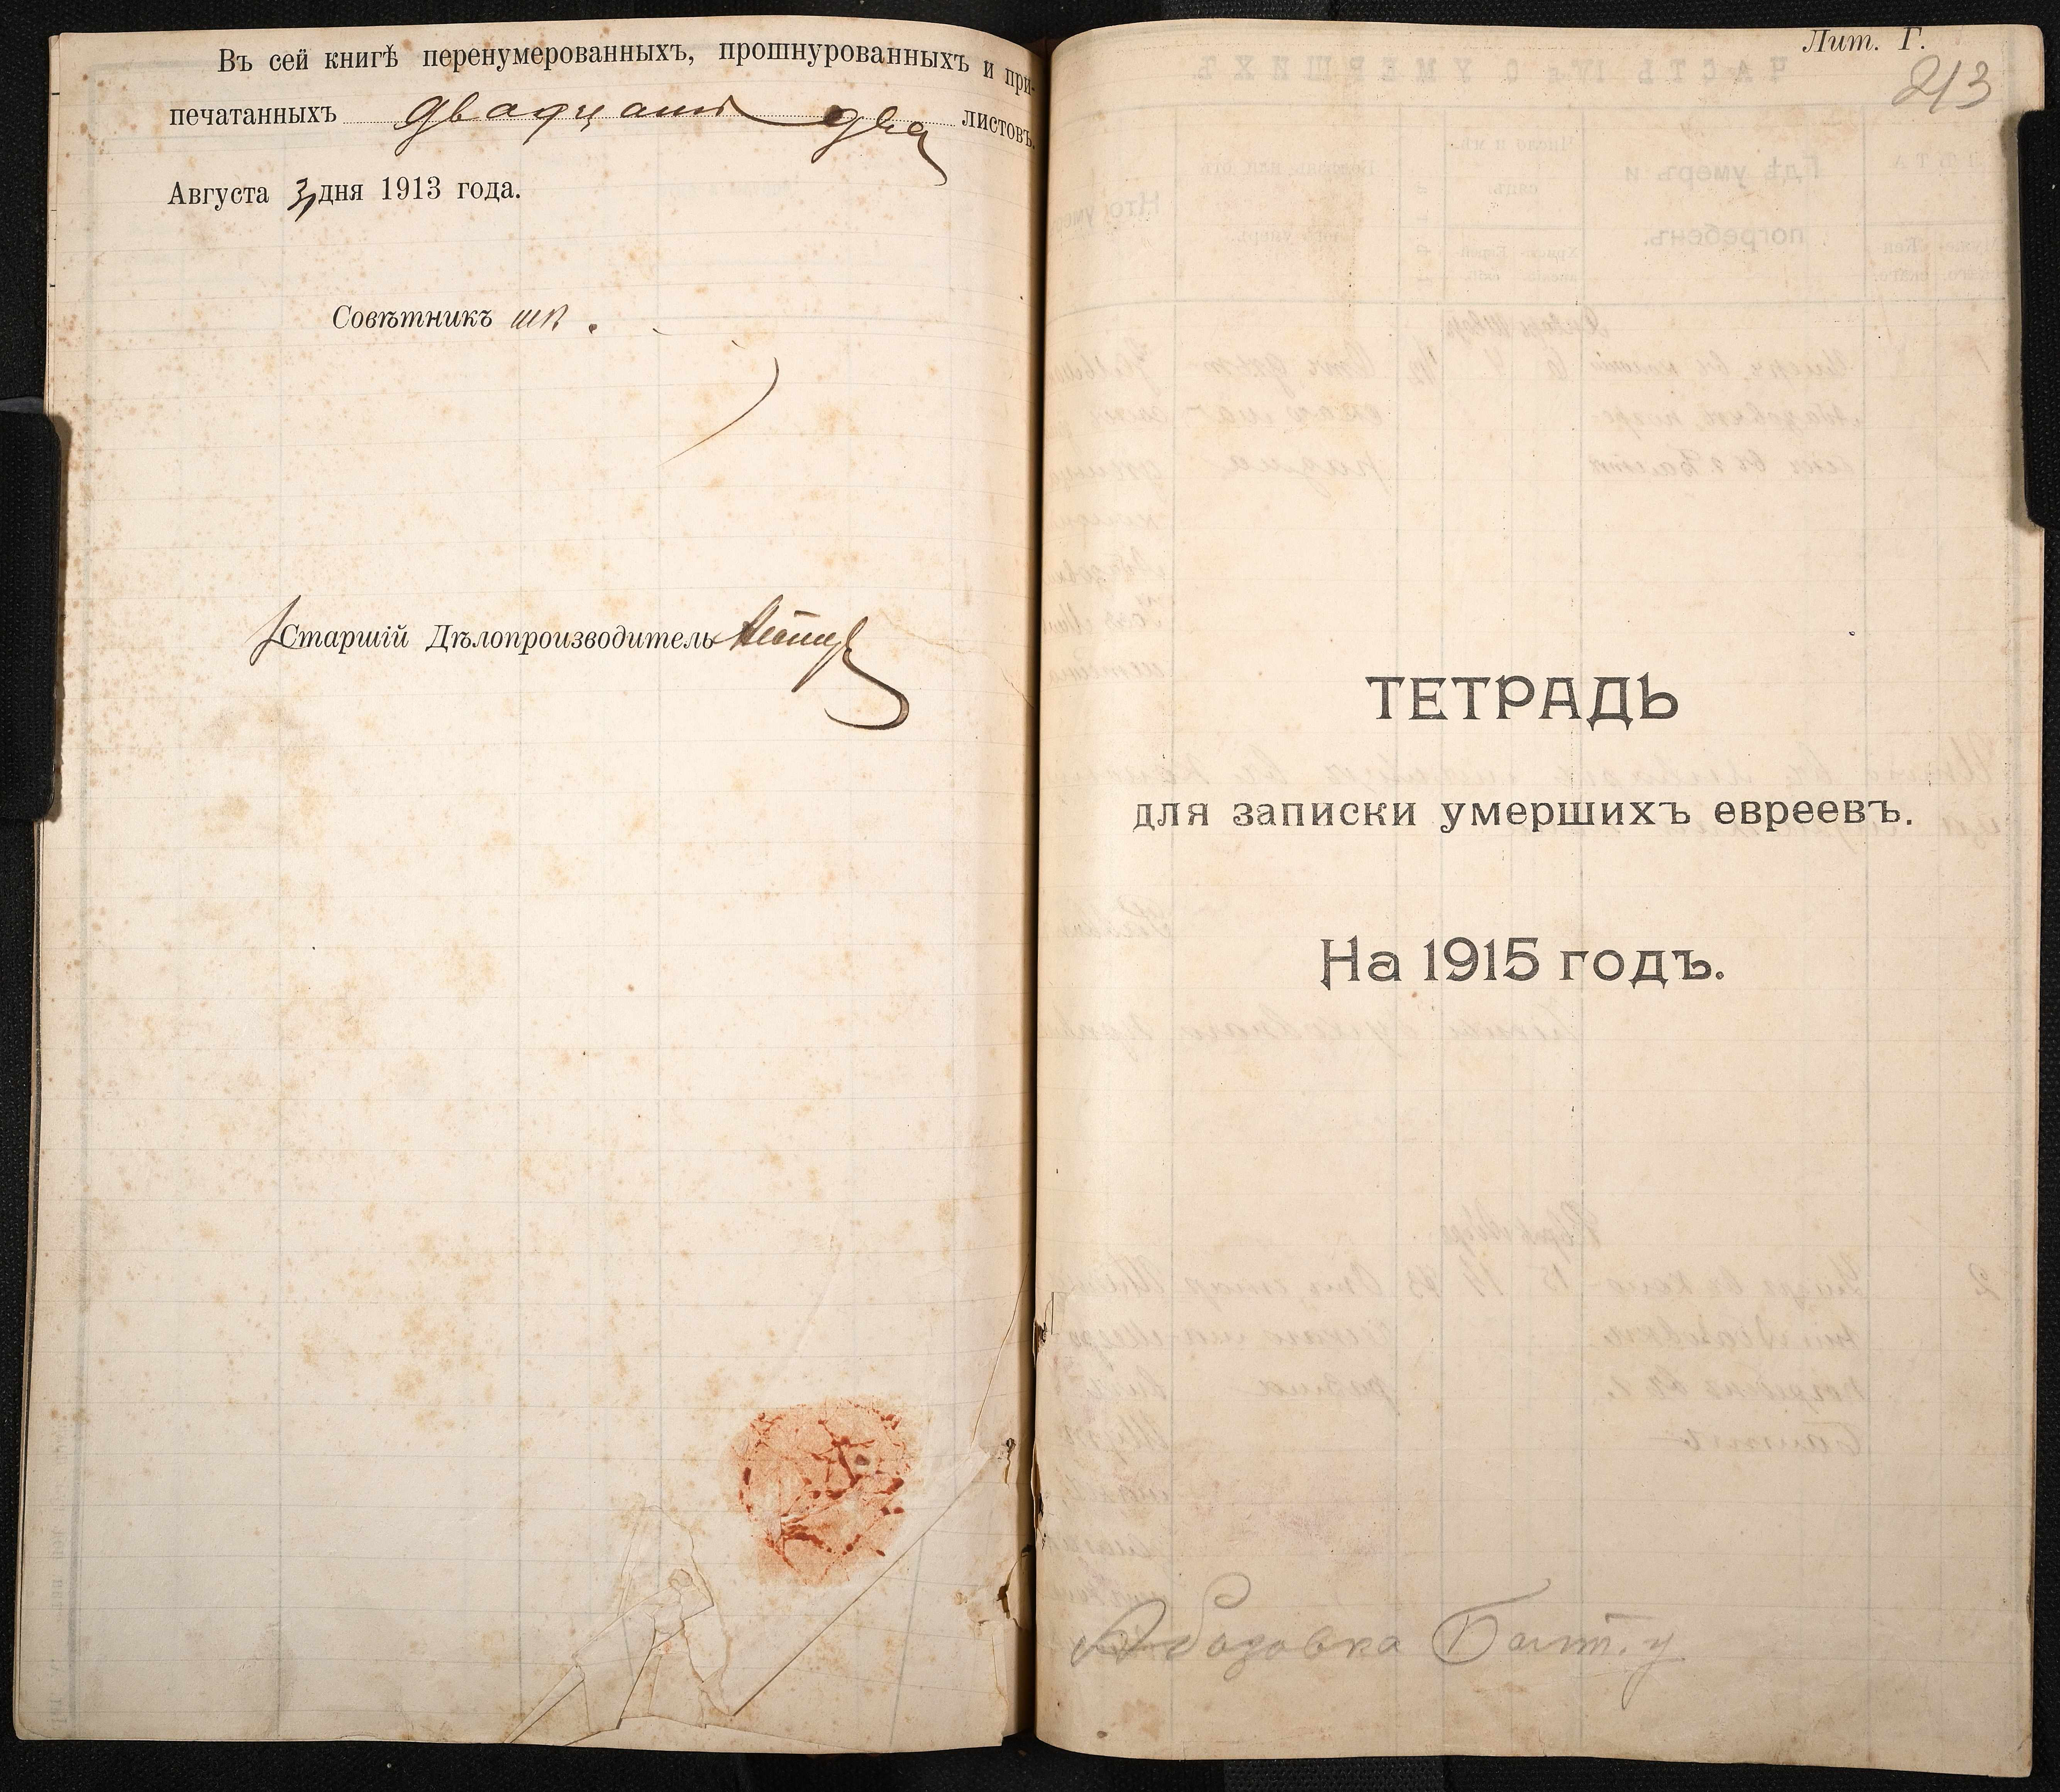 Въ сей книгѣ перенумерованныхъ, прошнурованныхъ и при-
печатанныхъ двадцать два листовъ.
Августа 3 дня 1913 года.
Совѣтникъ
Старшій Дѣлопроизводитель
Лит. Г.
213
ТЕТРАДЬ
для записки умершихъ евреевъ.
На 1915 годъ.
Абазовка Балт. у